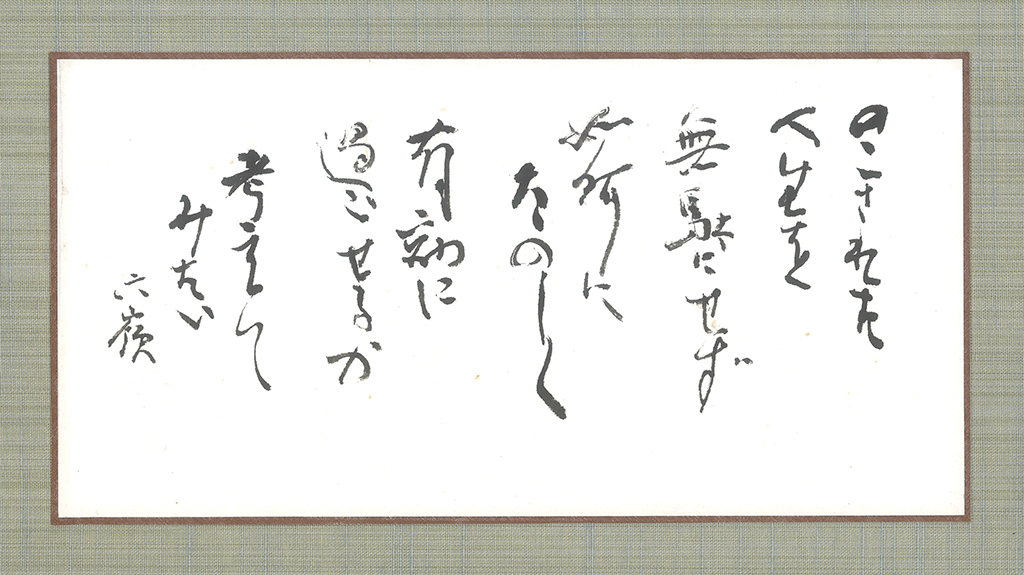 のこされた
人生を
無駄にせず
如何に
たのしく
有効に
過ごせるか
考えて
みたい
六嶺